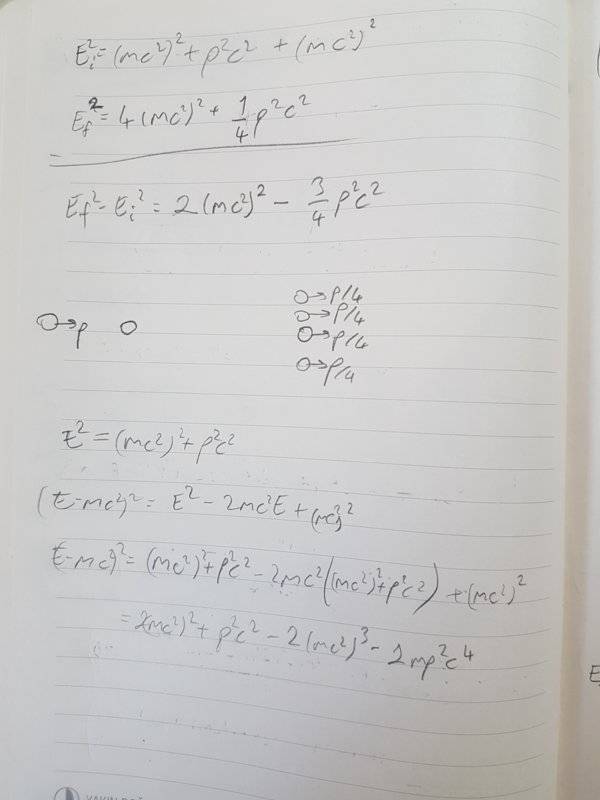 E_i^2 = (mc^2)^2 + p^2c^2 + (mc^2)^2
E_f^2 = 4(mc^2)^2 + 1/4 p^2c^2
E_f^2 - E_i^2 = 2(mc^2)^2 - 3/4 p^2c^2
→p/4
→p/4
→p
→p/4
→p/4
E^2 = (mc^2)^2 + p^2c^2
(E-mc^2)^2 = E^2 - 2mc^2E + (mc^2)^2
E-mc^2)^2 = (mc^2)^2 + p^2c^2 - 2mc^2((mc^2)^2 + p^2c^2) + (mc^2)^2
= 2(mc^2)^2 + p^2c^2 - 2(mc^2)^3 - 2mp^2c^4